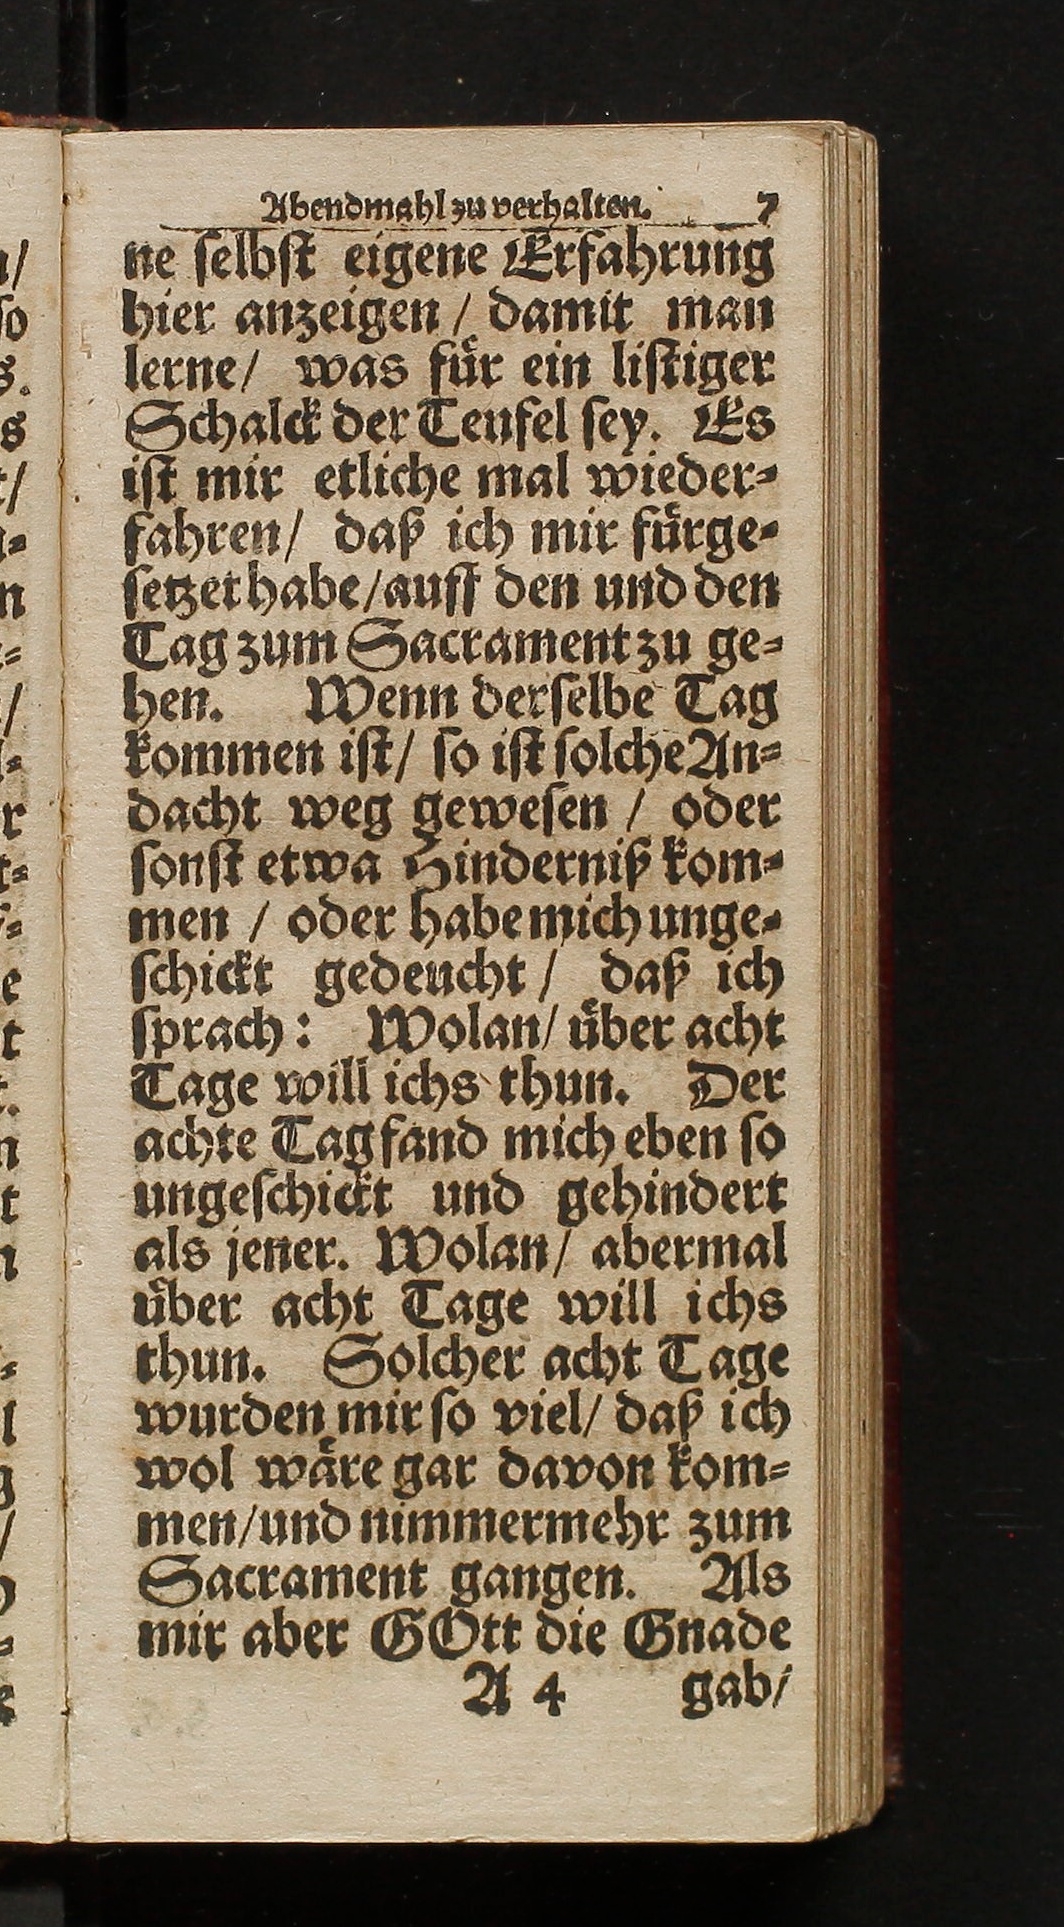 Abendmahl zu verhalten. 7
ne selbst eigene Erfahrung
hier anzeigen / damit man
lerne / was fuͤr ein listiger
Schalck der Teufel sey. Es
ist mir etliche mal wieder-
fahren / daß ich mir fuͤrge-
setzet habe / auff den und den
Tag zum Sacrament zu ge-
hen. Wenn derselbe Tag
kommen ist / so ist solche An-
dacht weg gewesen / oder
sonst etwa Hinderniß kom-
men / oder habe mich unge-
schickt gedeucht / daß ich
sprach: Wolan / uͤber acht
Tage will ichs thun. Der
achte Tag fand mich eben so
ungeschickt und gehindert
als jener. Wolan / abermal
uͤber acht Tage will ichs
thun. Solcher acht Tage
wurden mir so viel / daß ich
wol waͤre gar davon kom-
men / und nimmermehr zum
Sacrament gangen. Als
mir aber GOtt die Gnade
A 4 gab /